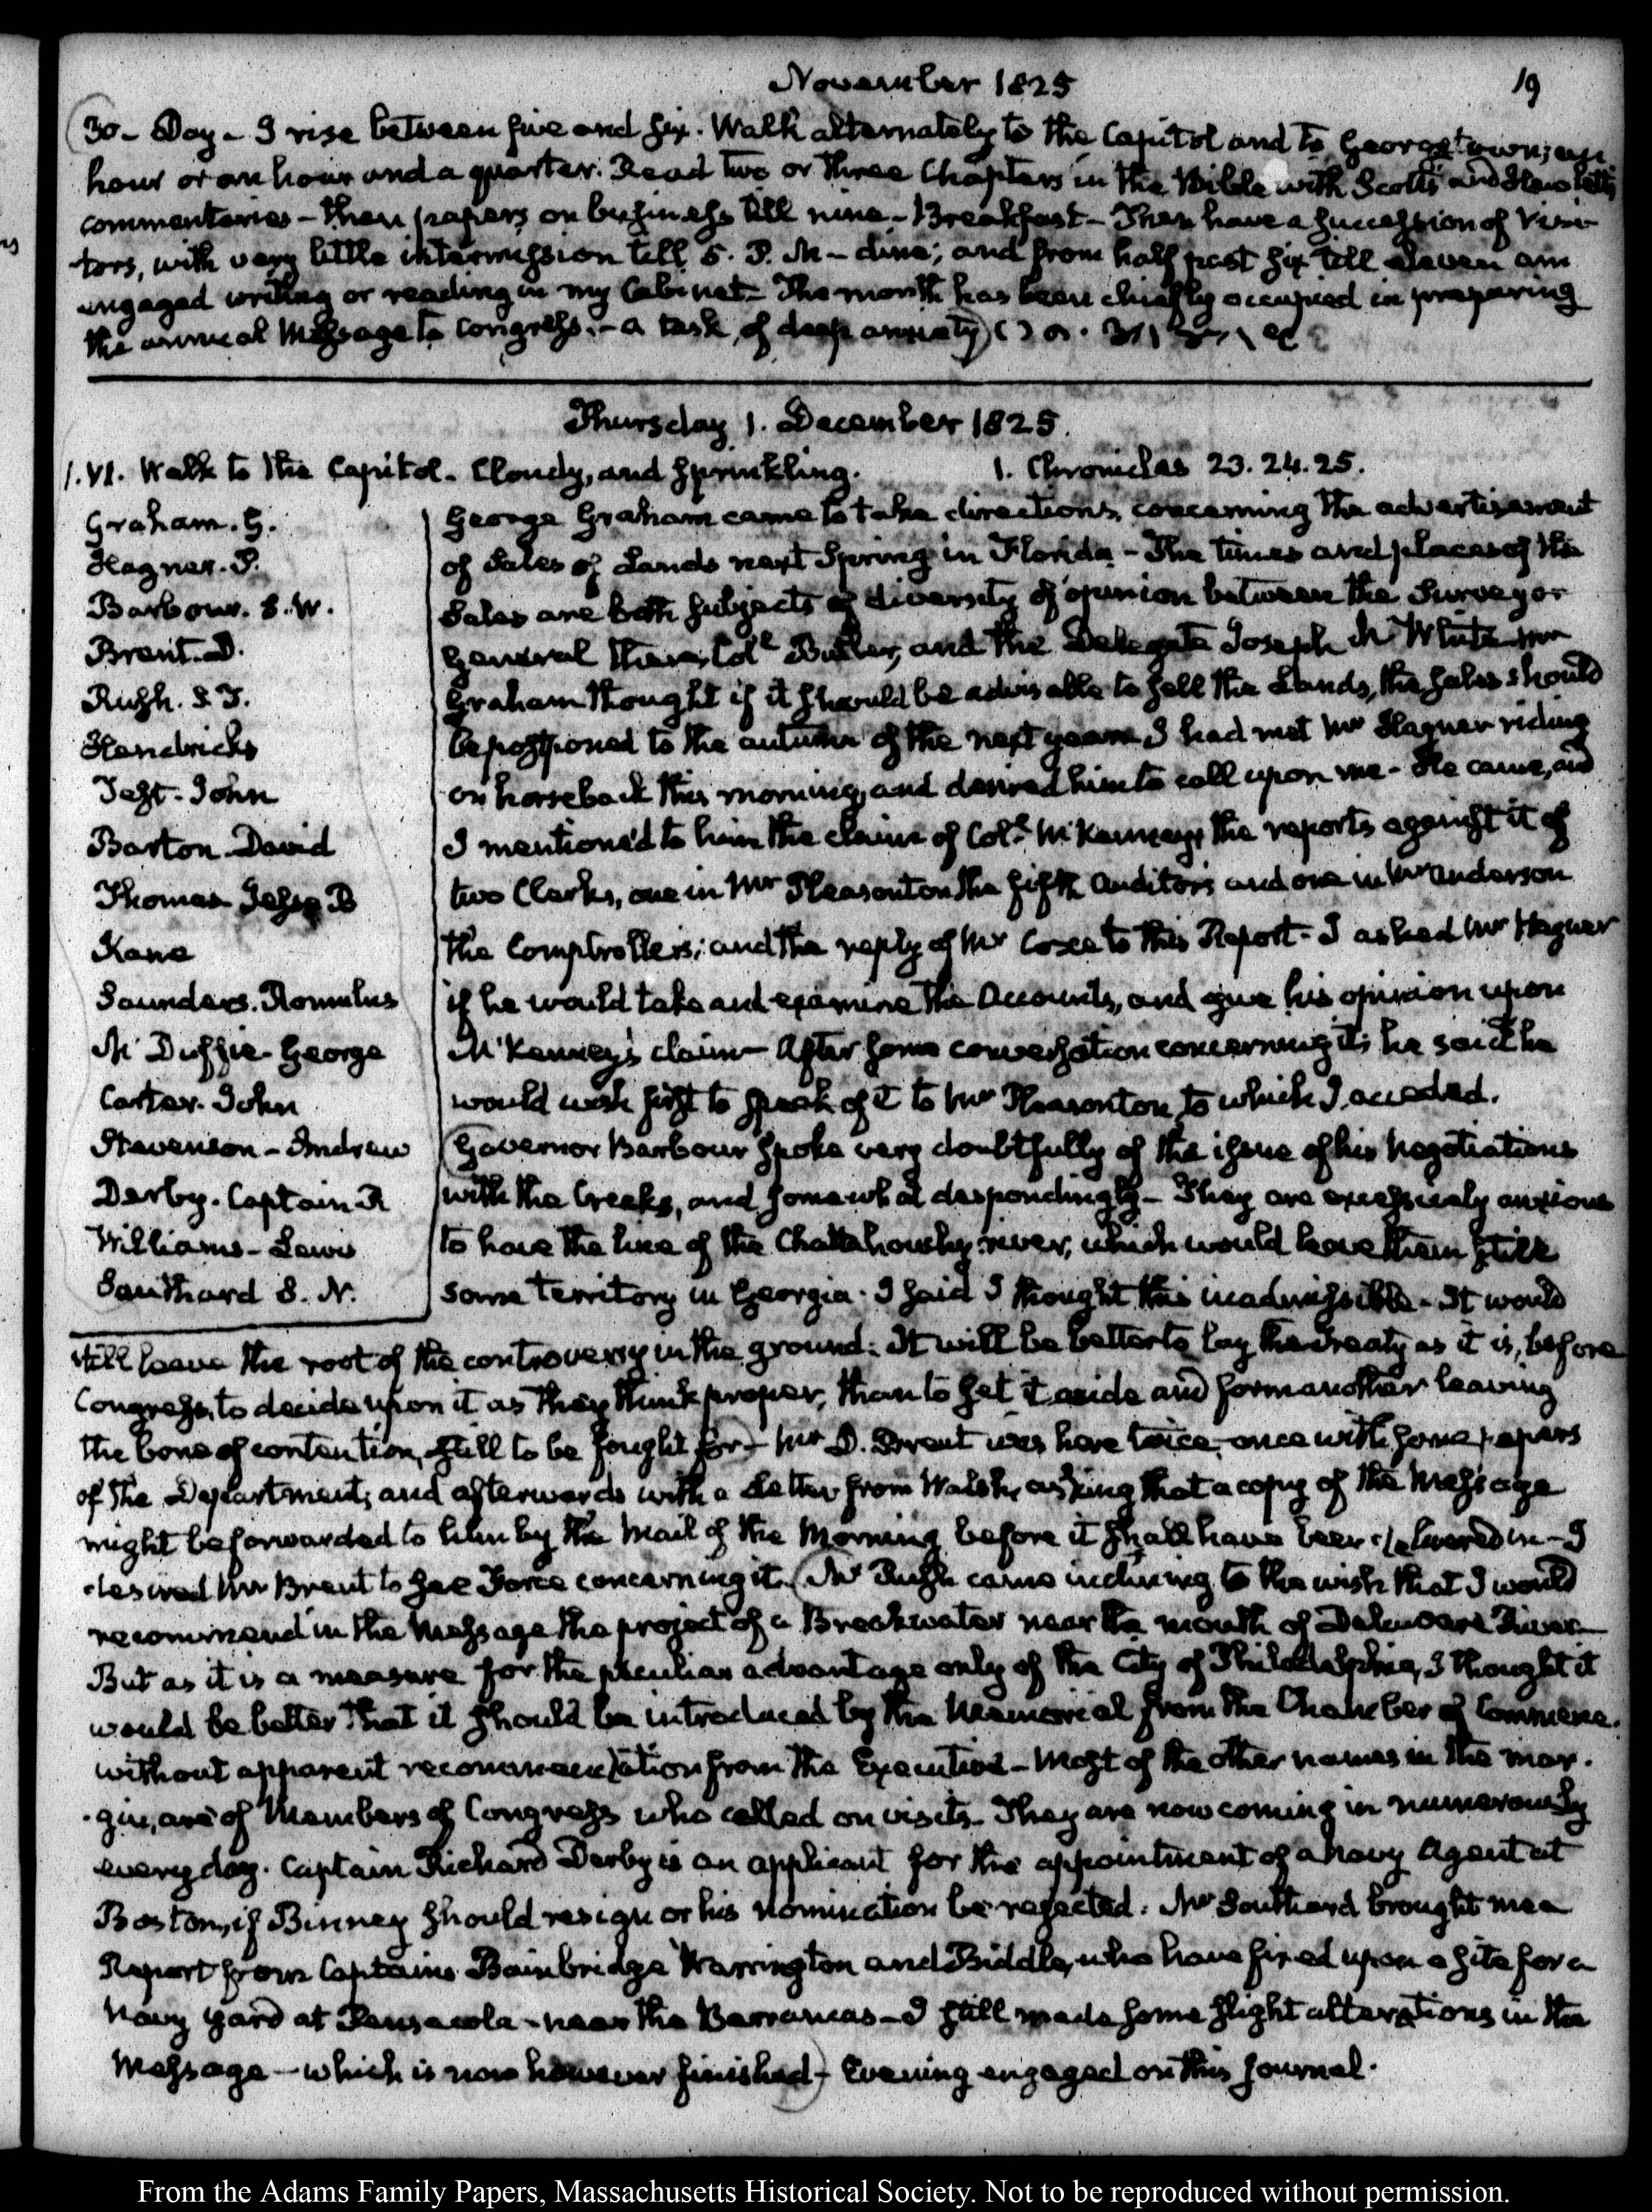 November 1825
19
30- Day - I rise between five and six. Walk alternately to the Capitol and to Georgetown; an
hour or an hour and a quarter. Read two or three Chapters in the Bible with Scotts and Hewlett's
commentaries - then papers on business till nine - Breakfast - Then have a succession of Visi-
tors, with very little intermission till 5. P. M - dine; and from half past six till eleven am
engaged writing or reading in my Cabinet - The month has been chiefly occupied in preparing
the annual Message to Congress. - a task of deep anxiety
Thursday 1. December 1825.
1. VI. Walk to the Capitol. Cloudy, and sprinkling. 1. Chronicles 23. 24. 25.
Graham. G.
Hagner. P.
Barbour. S. W.
Brent. D.
Rush. S. T.
Hendricks
Test - John
Barton David
Thomas Jesse B
Kane
Saunders. Romulus
Mc Duffie - George
Carter. John
Stevenson - Andrew
Derby. Captain R
Williams - Lewis
Southard S. N.
George Graham came to take directions, concerning the advertisement
of Sales of Lands next Spring in Florida - The times and places of the
Sales are both subjects of diversity of opinion between the Surveyor
General there, Coll. Butler, and the Delegate Joseph M White. Mr
Graham thought if it should be advisable to sell the Lands, the sales should
be postponed to the autumn of the next year. I had met Mr Hagner riding
on horseback this morning, and desired him to call upon me - He came, and
I mentioned to him the claim of Coll. McKenney, the reports against it of
two Clerks, one in Mr Pleasonton the fifth Auditors and one in Mr Anderson
the Comptrollers; and the reply of Mr Coxe to this Report - I asked Mr Hagner
if he would take and examine the Accounts, and give his opinion upon
McKenney's claim - After some conversation concerning it, he said he
would wish first to speak of it to Mr Pleasonton, to which I acceded.
Governor Barbour spoke very doubtfully of the issue of his Negotiations
with the Creeks, and somewhat despondingly - They are excessively anxious
to have the line of the Chattahouchy river, which would leave them still
some territory in Georgia. I said I thought this inadmissible - It would
still leave the root of the controversy in the ground. It will be better to lay the Treaty as it is, before
Congress, to decide upon it as they think proper, than to set it aside and form another leaving
the bone of contention, still to be fought for - Mr D. Brent was here twice, once with some papers
of the Department; and afterwards with a Letter from Walsh, asking that a copy of the Message
might be forwarded to him by the Mail of the Morning before it shall have been delivered in - I
desired Mr Brent to see Force concerning it. Mr Rush came inclining to the wish that I would
recommend in the Message the project of a Breakwater near the mouth of Delaware River -
But as it is a measure for the peculiar advantage only of the City of Philadelphia, I thought it
would be better that it should be introduced by the Memorial from the Chamber of Commerce.
without apparent recommendation from the Executive - Most of the other names in the mar-
gin, are of Members of Congress who called on visits. They are now coming in numerously
every day. Captain Richard Derby is an applicant for the appointment of a Navy Agent at
Boston, if Binney should resign or his nomination be rejected. Mr Southard brought me a
Report from Captains Bainbridge Warrington and Biddle, who have fixed upon a site for a
Navy Yard at Pensacola - near the Barrancas - I still made some slight alterations in the
Message - which is now however finished - Evening engaged on this Journal.
From the Adams Family Papers, Massachusetts Historical Society. Not to be reproduced without permission.